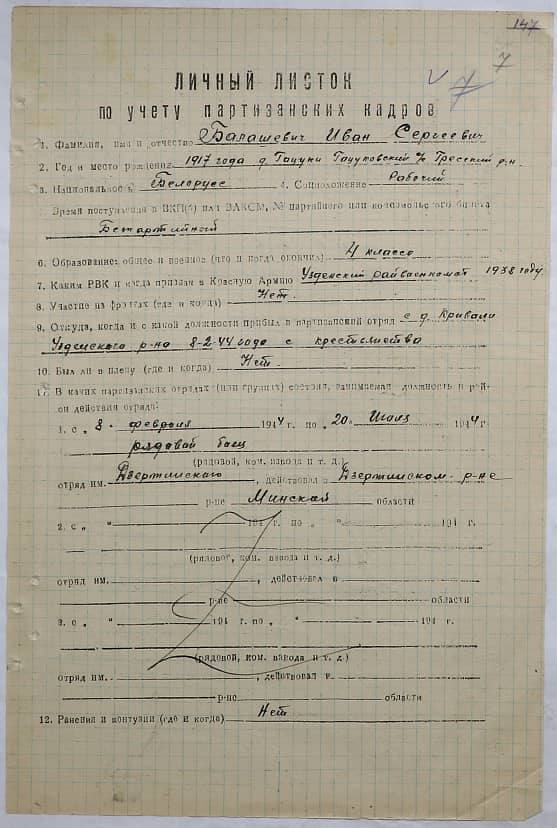 147
7
7
ЛИЧНЫЙ ЛИСТОК
по учету партизанских кадров
1. Фамилия, имя и отчество Балашевич Иван Сергеевич
2. Год и место рождения 1917 года д. Гацуки Гацуковский с/с Гресский р-н
3. Национальность Белорус 4. Соцположение Рабочий
Время поступления в ВКП(б) или ВЛКСМ, № партийного или комсомольского билета
Безпартийный
6. Образование: общее и военное (что и когда окончил) 4 класса
7. Каким РВК и когда призван в Красную Армию Узденский райвоенкомат 1938 году
8. Участие на фронтах (где и когда) Нет
9. Откуда, когда и с какой должности прибыл в партизанский отряд с д. Кривали
Узденского р-на 8-2-44 года с крестьянства
10. Был ли в плену (где и когда) Нет
11. В каких партизанских отрядах (или группах) состоял, занимаемая должность и рай-
он действия отряда:
1. с „ 8 „ февраля 1944 г. по „ 20 „ Июля 1944 г.
рядавой боец
(рядовой, ком. взвода и т. д.)
отряд им. Дзержинскаго, действовал в Дзержинском р-не
р-не Минской области
2. с „ “ 194 г. по „ “ 194 г.
(рядовой, ком. взвода и т. д.)
отряд им. , действовал в
р-не области
3. с „ “ 194 г. по „ “ 194 г.
(рядовой, ком. взвода и т. д.)
отряд им. , действовал в
р-не области
12. Ранения и контузии (где и когда) Нет